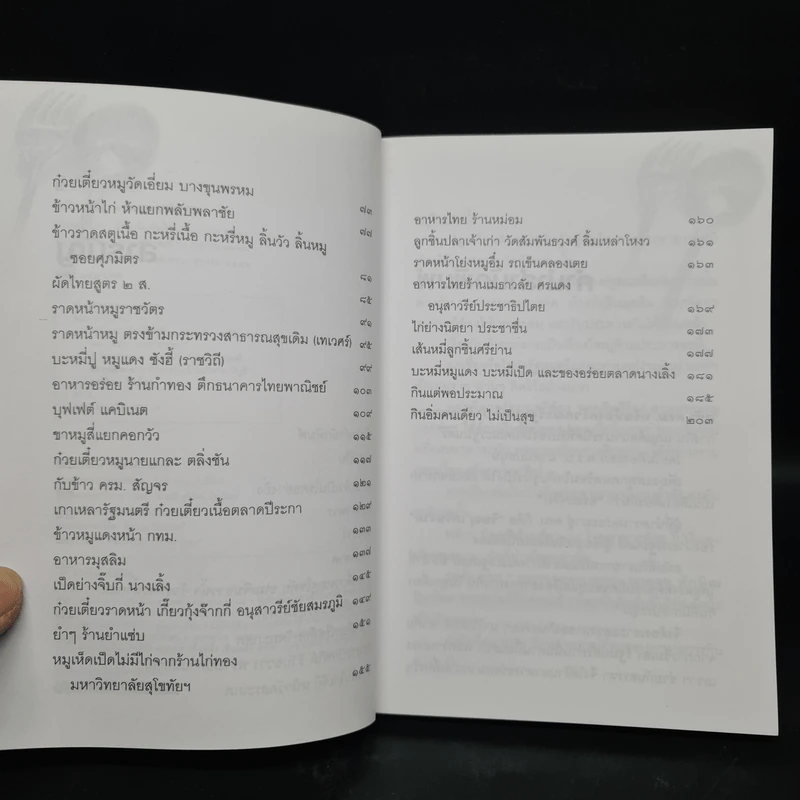 ก๋วยเตี๋ยวหมูวัดเอี่ยม บางขุนพรหม ๗๓
ข้าวหน้าไก่ ห้าแยกพลับพลาชัย ๗๗
ข้าวราดสตูเนื้อ กะหรี่เนื้อ กะหรี่หมู ลิ้นวัว ลิ้นหมู
ซอยศุภมิตร ๘๑
ผัดไทยสูตร ๒ ส. ๘๕
ราดหน้าหมูราชวัตร ๙๑
ราดหน้าหมู ตรงข้ามกระทรวงสาธารณสุขเดิม (เทเวศร์) ๙๕
บะหมี่ปู หมูแดง ซังฮี้ (ราชวิถี) ๙๙
อาหารอร่อย ร้านกำทอง ตึกธนาคารไทยพาณิชย์ ๑๐๓
บุฟเฟต์ แคบิเนต ๑๐๙
ขาหมูสี่แยกคอกวัว ๑๑๕
ก๋วยเตี๋ยวหมูนายแกละ ตลิ่งชัน ๑๑๗
กับข้าว ครม. สัญจร ๑๒๑
เกาเหลารัฐมนตรี ก๋วยเตี๋ยวเนื้อตลาดปีระกา ๑๒๙
ข้าวหมูแดงหน้า กทม. ๑๓๓
อาหารมุสลิม ๑๓๗
เป็ดย่างจิ๊บกี่ นางเลิ้ง ๑๔๕
ก๋วยเตี๋ยวราดหน้า เกี๊ยวกุ้งจ๊ากกี่ อนุสาวรีย์ชัยสมรภูมิ ๑๔๙
ยำๆ ร้านยำแซ่บ ๑๕๑
หมูเห็ดเป็ดไม่มีไก่จากร้านไก่ทอง
มหาวิทยาลัยสุโขทัยฯ ๑๕๕
อาหารไทย ร้านหม่อม ๑๖๐
ลูกชิ้นปลาเจ้าเก่า วัดสัมพันธวงศ์ ลิ้มเหล่าโหงว ๑๖๑
ราดหน้าโย่งหมูอึ๋ม รถเข็นคลองเตย ๑๖๓
อาหารไทยร้านเมธาวลัย ศรแดง
อนุสาวรีย์ประชาธิปไตย ๑๖๙
ไก่ย่างนิตยา ประชาชื่น ๑๗๓
เส้นหมี่ลูกชิ้นศรีย่าน ๑๗๗
บะหมี่หมูแดง บะหมี่เป็ด และของอร่อยตลาดนางเลิ้ง ๑๘๑
กินแต่พอประมาณ ๑๘๕
กินอิ่มคนเดียว ไม่เป็นสุข ๒๐๓